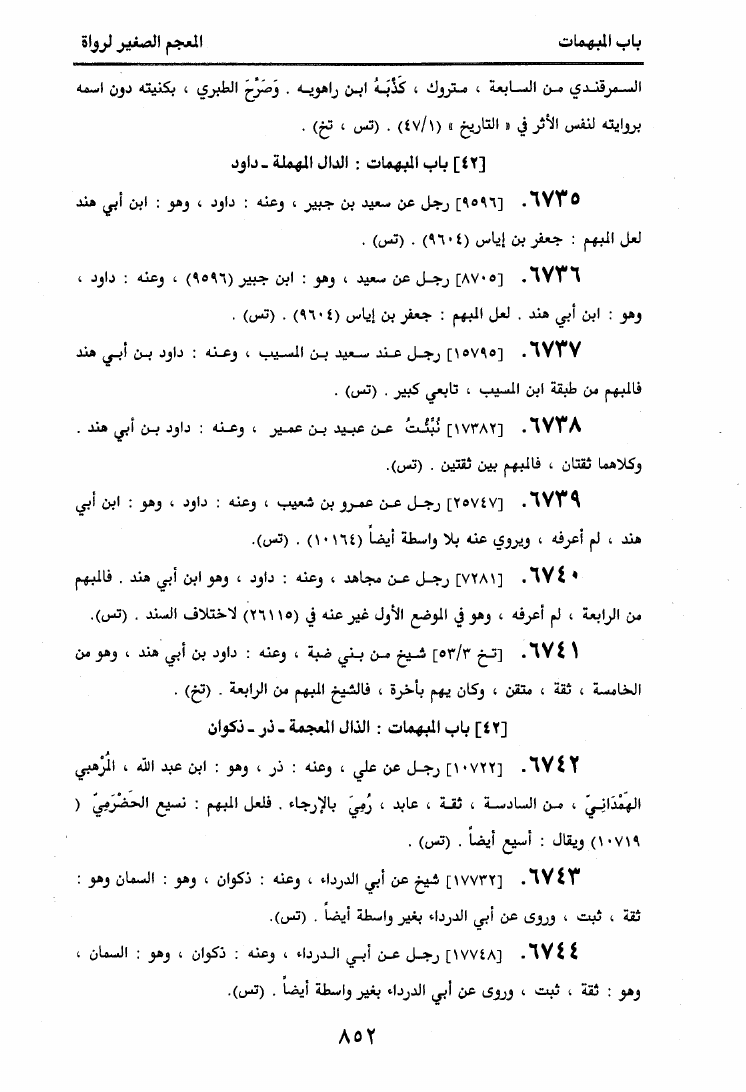 باب المبهمات
المعجم الصغير لرواة
السمرقندي من السابعة ، متروك ، كَذَّبَهُ ابن راهويه . وَصَرَّحَ الطبري ، بكنيته دون اسمه
بروايته لنفس الأثر في « التاريخ » (٤٧/١) . (تس ، تخ) .
[٤٢] باب المبهمات : الدال المهملة ـ داود
٦٧٣٥. [٩٥٩٦] رجل عن سعيد بن جبير ، وعنه : داود ، وهو : ابن أبي هند
لعل المبهم : جعفر بن إياس (٩٦٠٤) . (تس) .
٦٧٣٦. [٨٧٠٥] رجل عن سعيد ، وهو : ابن جبير (٩٥٩٦) ، وعنه : داود ،
وهو : ابن أبي هند . لعل المبهم : جعفر بن إياس (٩٦٠٤) . (تس) .
٦٧٣٧. [١٥٧٩٥] رجل عند سعيد بن المسيب ، وعنه : داود بن أبي هند
فالمبهم من طبقة ابن المسيب ، تابعي كبير . (تس) .
٦٧٣٨. [١٧٣٨٢] نُبِّئْتُ عن عبيد بن عمير ، وعنه : داود بن أبي هند .
وكلاهما ثقتان ، فالمبهم بين ثقتين . (تس).
٦٧٣٩. [٢٥٧٤٧] رجل عن عمرو بن شعيب ، وعنه : داود ، وهو : ابن أبي
هند ، لم أعرفه ، ويروي عنه بلا واسطة أيضاً (١٠١٦٤) . (تس).
٦٧٤٠. [٧٢٨١] رجل عن مجاهد ، وعنه : داود ، وهو ابن أبي هند . فالمبهم
من الرابعة ، لم أعرفه ، وهو في الموضع الأول غير عنه في (٢٦١١٥) لاختلاف السند . (تس).
٦٧٤١. [تخ ٥٣/٣] شيخ من بني ضبة ، وعنه : داود بن أبي هند ، وهو من
الخامسة ، ثقة ، متقن ، وكان يهم بأخرة ، فالشيخ المبهم من الرابعة . (تخ) .
[٤٢] باب المبهمات : الذال المعجمة ـ ذر ـ ذكوان
٦٧٤٢. [١٠٧٢٢] رجل عن علي ، وعنه : ذر ، وهو : ابن عبد الله ، المُرْهبي
الهَمْدَانِيّ ، من السادسة ، ثقة ، عابد ، رُمِيَ بالإرجاء . فلعل المبهم : نسيع الحَضْرَمِيّ (
١٠٧١٩) ويقال : أسيع أيضاً . (تس) .
٦٧٤٣. [١٧٧٣٢] شيخ عن أبي الدرداء ، وعنه : ذكوان ، وهو : السمان وهو :
ثقة ، ثبت ، وروى عن أبي الدرداء بغير واسطة أيضاً . (تس).
٦٧٤٤. [١٧٧٤٨] رجل عن أبي الدرداء ، وعنه : ذكوان ، وهو : السمان ،
وهو : ثقة ، ثبت ، وروى عن أبي الدرداء بغير واسطة أيضاً . (تس).
٨٥٢